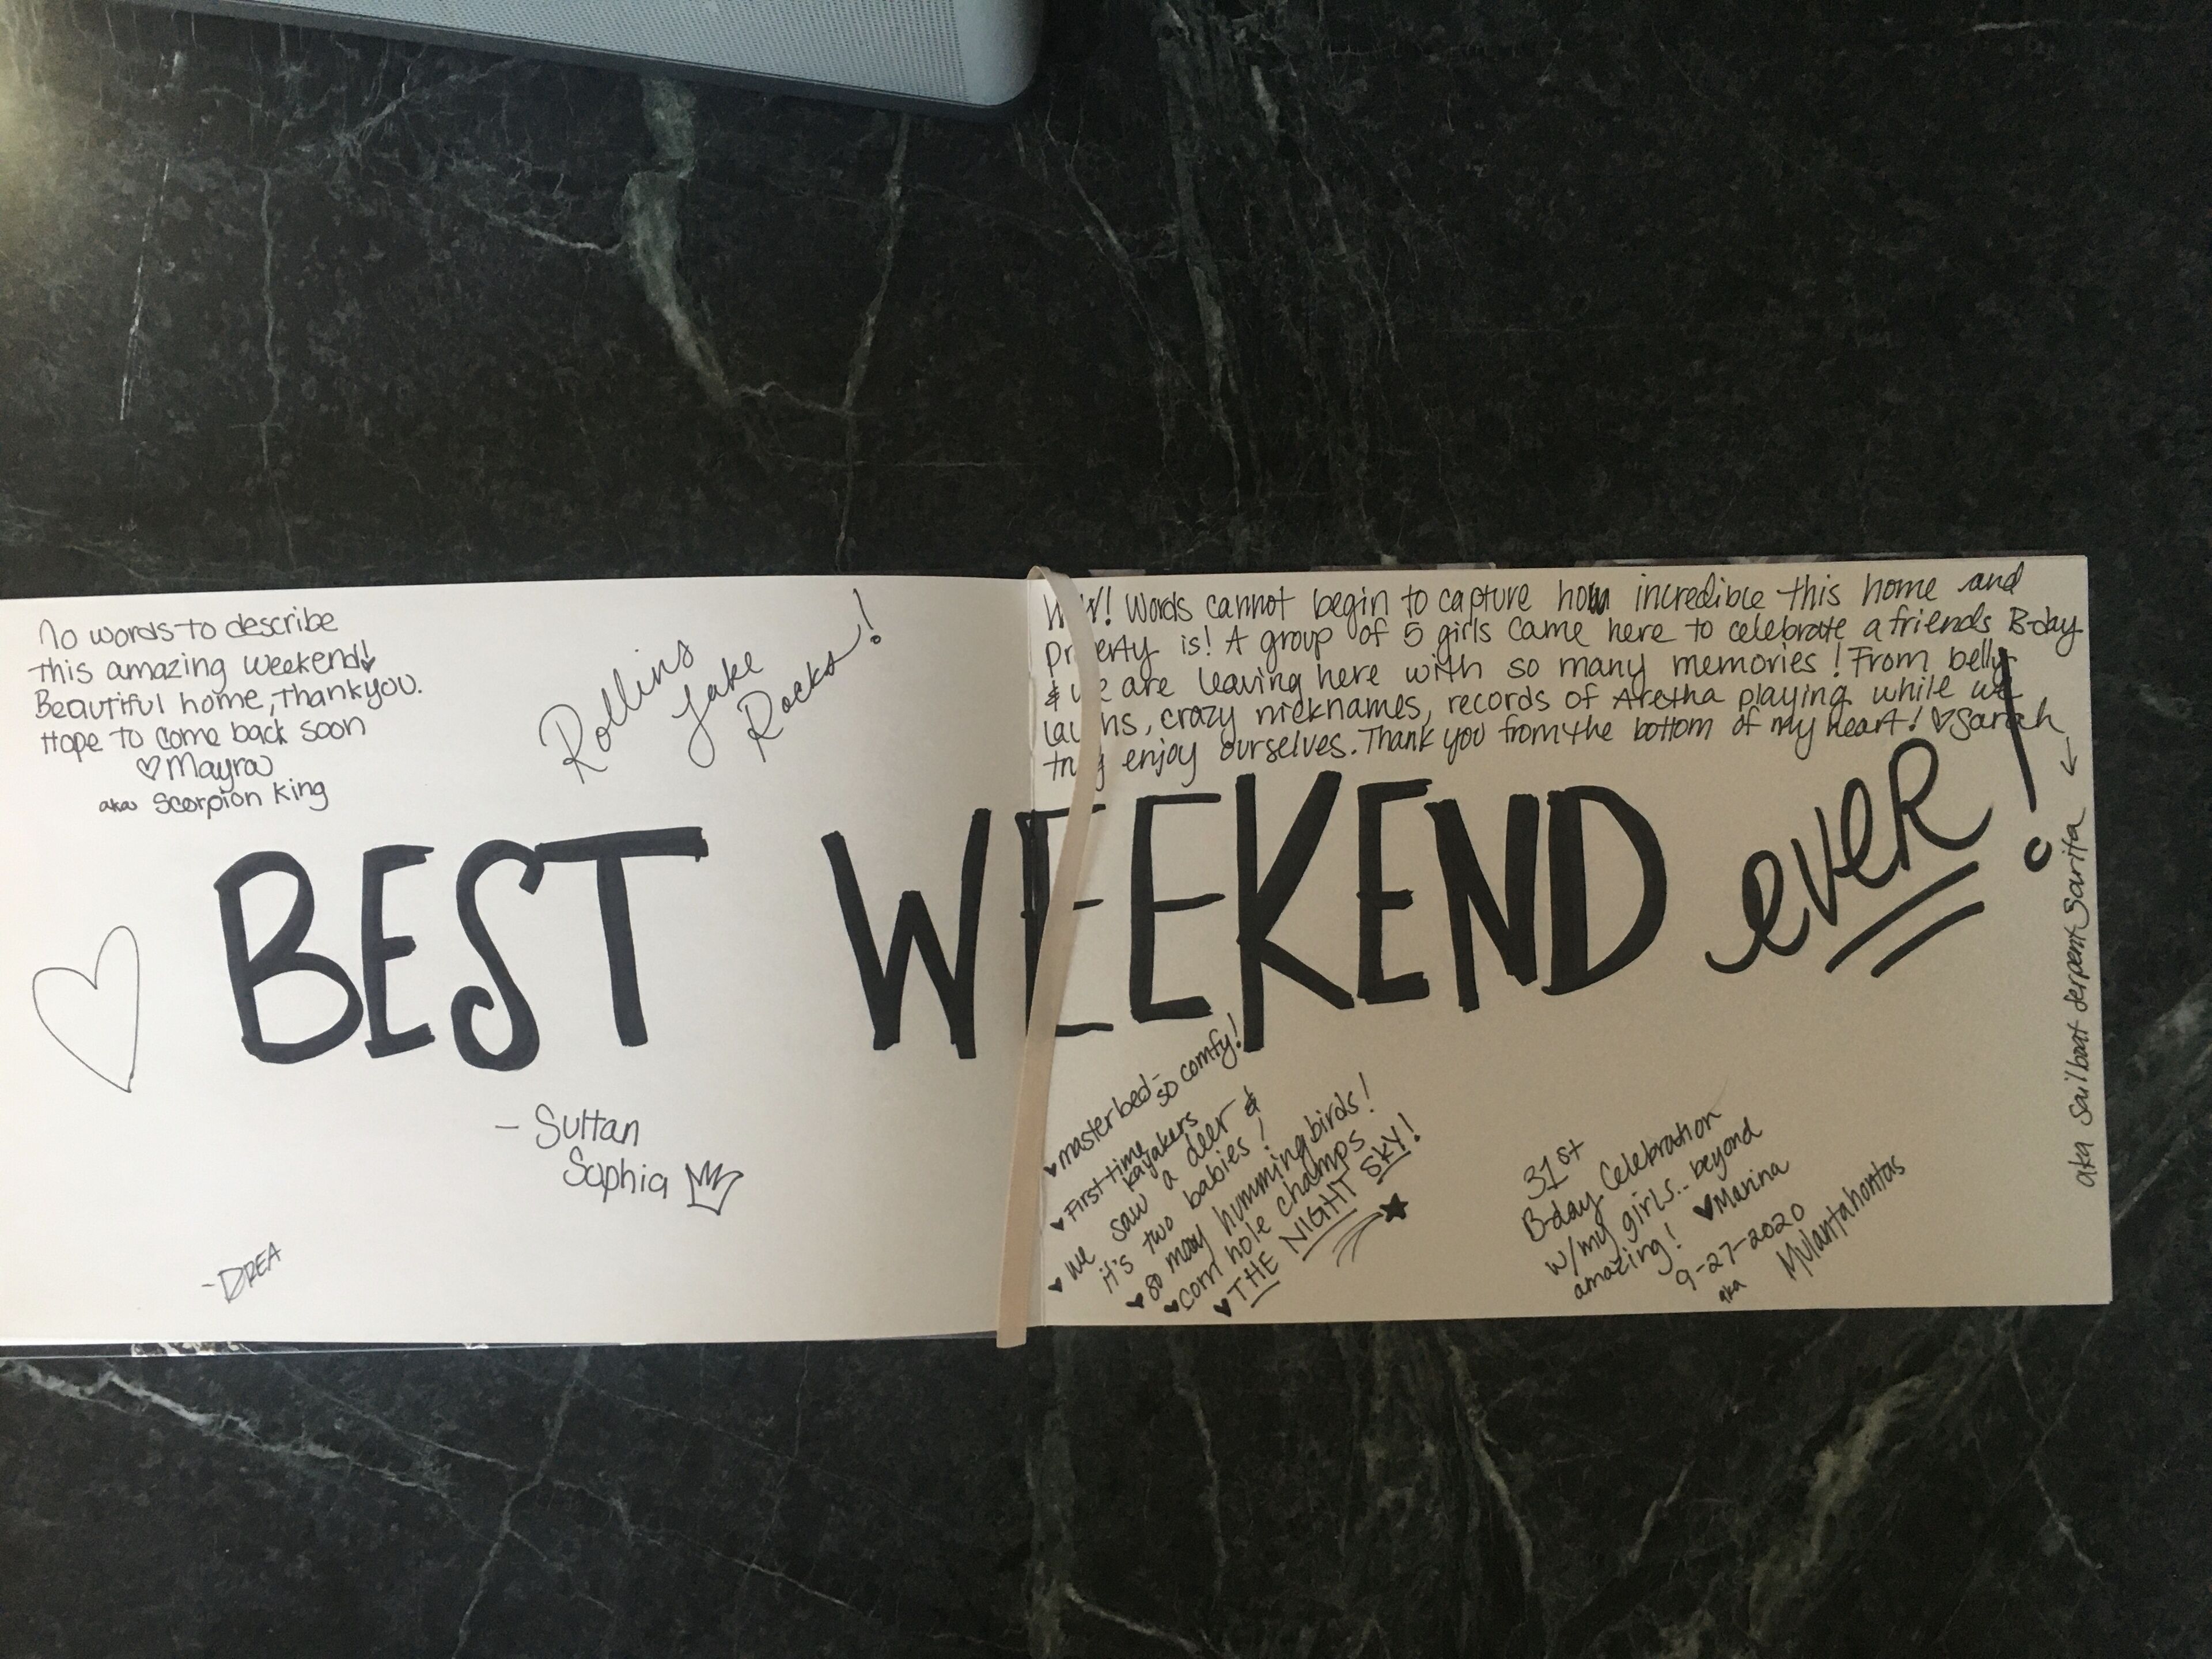 No words to describe
this amazing weekend!
Beautiful home, thankyou.
Hope to come back soon
♡Mayra
aka Scorpion King
Rollins
Lake
Rocks!
BEST WEEKEND ever!
- Sultan
Sophia
-DREA
Words cannot begin to capture how incredible this home and
is! A group of 5 girls came here to celebrate a friends B-day
& we are leaving here with so many memories! From belly
laughs, crazy nicknames, records of Aretha playing while we
truly enjoy ourselves. Thank you from the bottom of my heart! ♡Sarah
aka Sailboat Serpent Sarita
♥master bed-
so comfy!
♥First time
kayakers
♥ we saw a deer &
it's two babies!
♥ so many hummingbirds!
♥corn hole champs
♥ THE NIGHT SKY!
31st
B-day Celebration
w/my girls.. beyond
amazing! ♥Marina
9-27-2020
aka Mulantahontas